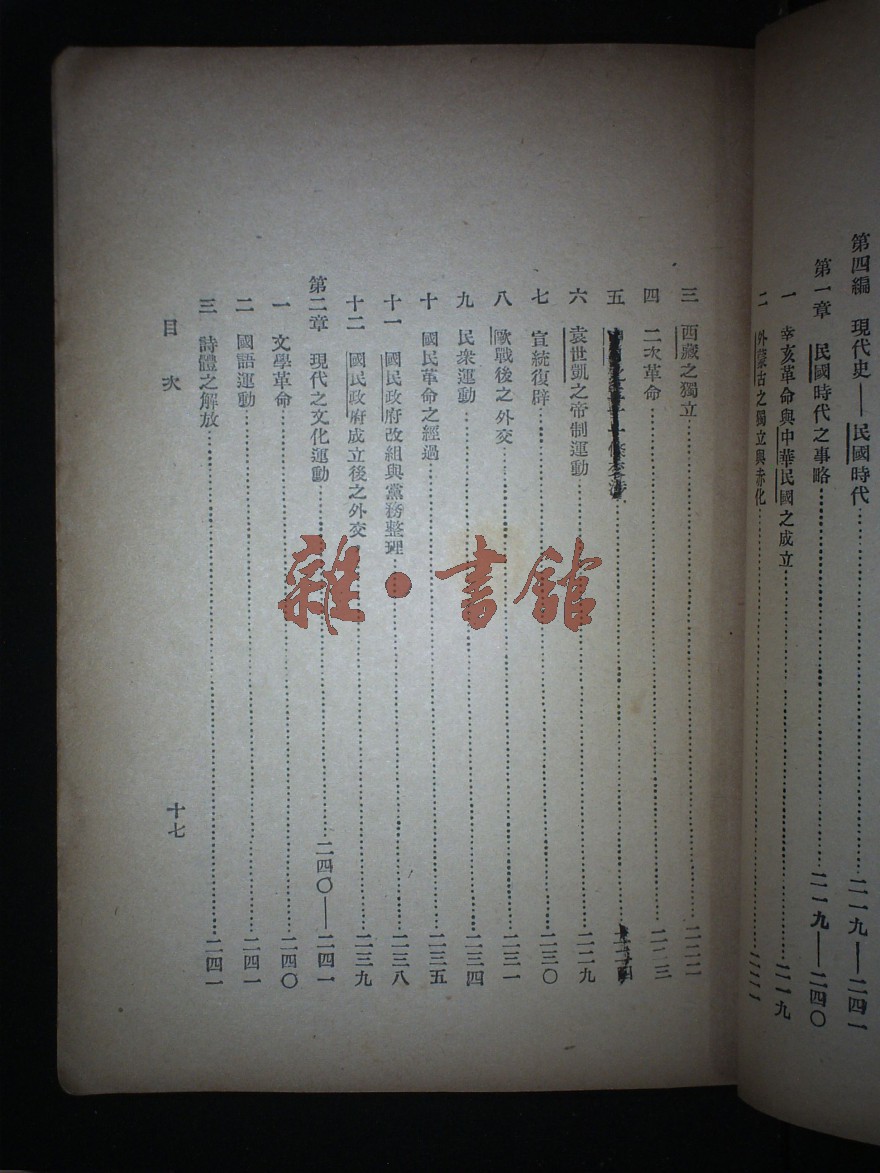 第四編 現代史——民國時代……二一九—二四一
第一章 民國時代之事略……二一九—二四〇
一 辛亥革命與中華民國之成立……二一九
二 外蒙古之獨立與赤化……二二一
三 西藏之獨立……二二二
四 二次革命……二二三
五 十一條交涉……
六 袁世凱之帝制運動……二二九
七 宣統復辟……二三〇
八 歐戰後之外交……二三一
九 民衆運動……二三四
十 國民革命之經過……二三五
十一 國民政府改組與黨務整理……二三八
十二 國民政府成立後之外交……二三九
第二章 現代之文化運動……二四〇—二四一
一 文學革命……二四〇
二 國語運動……二四一
三 詩體之解放……二四一
目次
十七
雜·書館